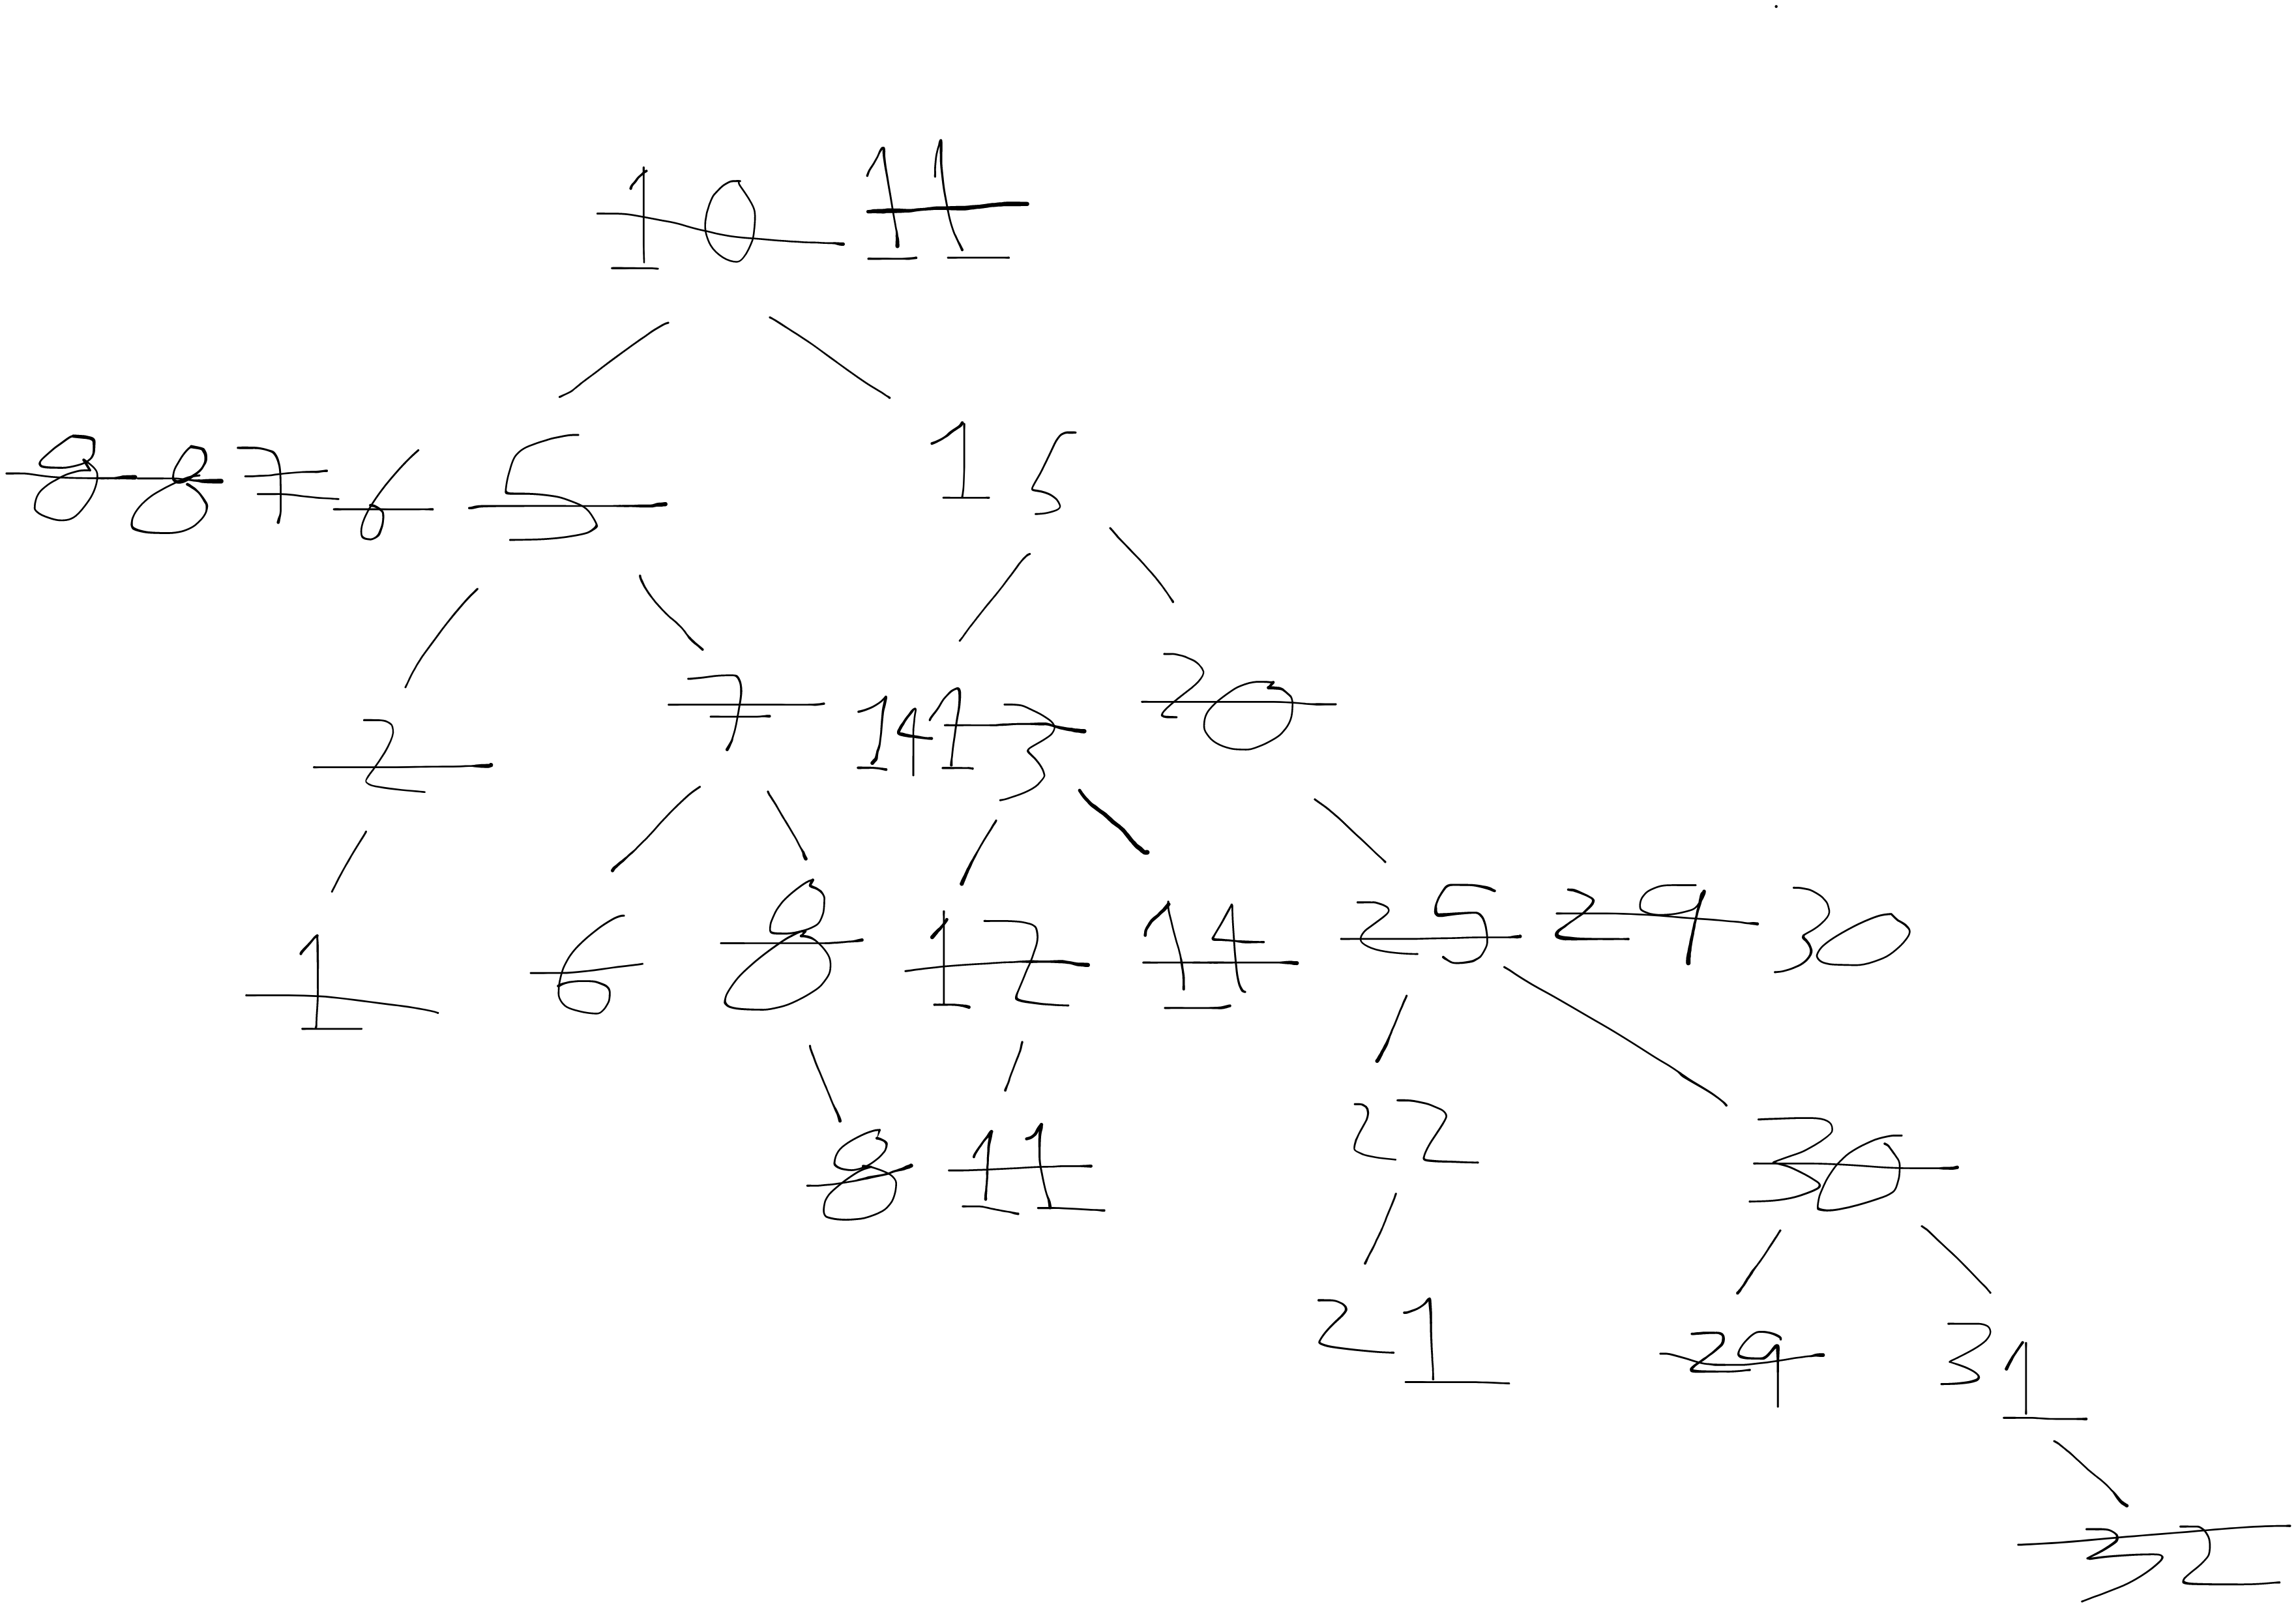 10 11
8 8 7 6 5 15
2 7 14 13 20
1 6 8 12 14 25 29 30
8 11 22 30
21 29 31
32